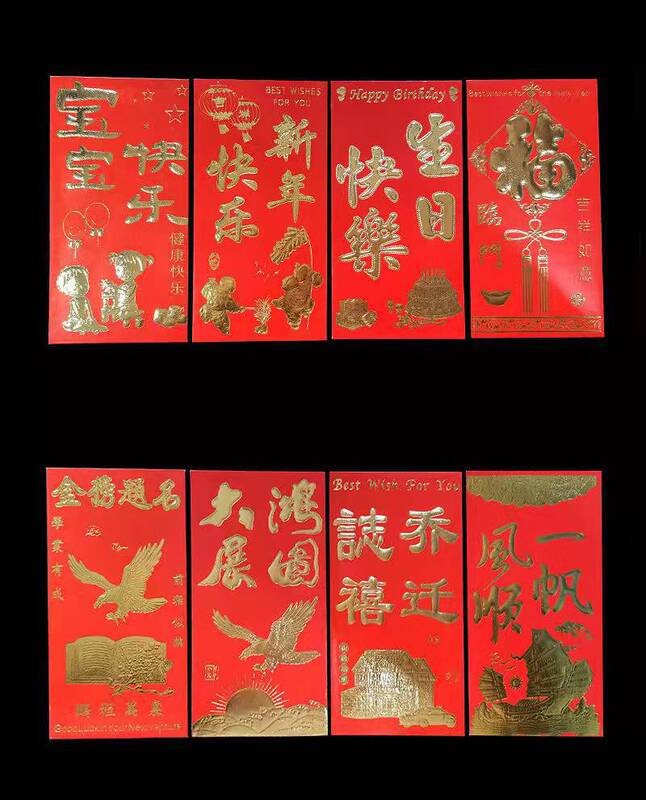 宝宝
快乐
健康快乐
BEST WISHES
FOR YOU
新年
快乐
Happy Birthday
生日
快樂
Best wishes for the New Year
福
臨門
吉祥如意
金榜題名
學業有成
前程似錦
鵬程萬里
Good Luck in Your New Venture
鴻圖
大展
Best Wish For You
乔迁
誌禧
一帆
風順